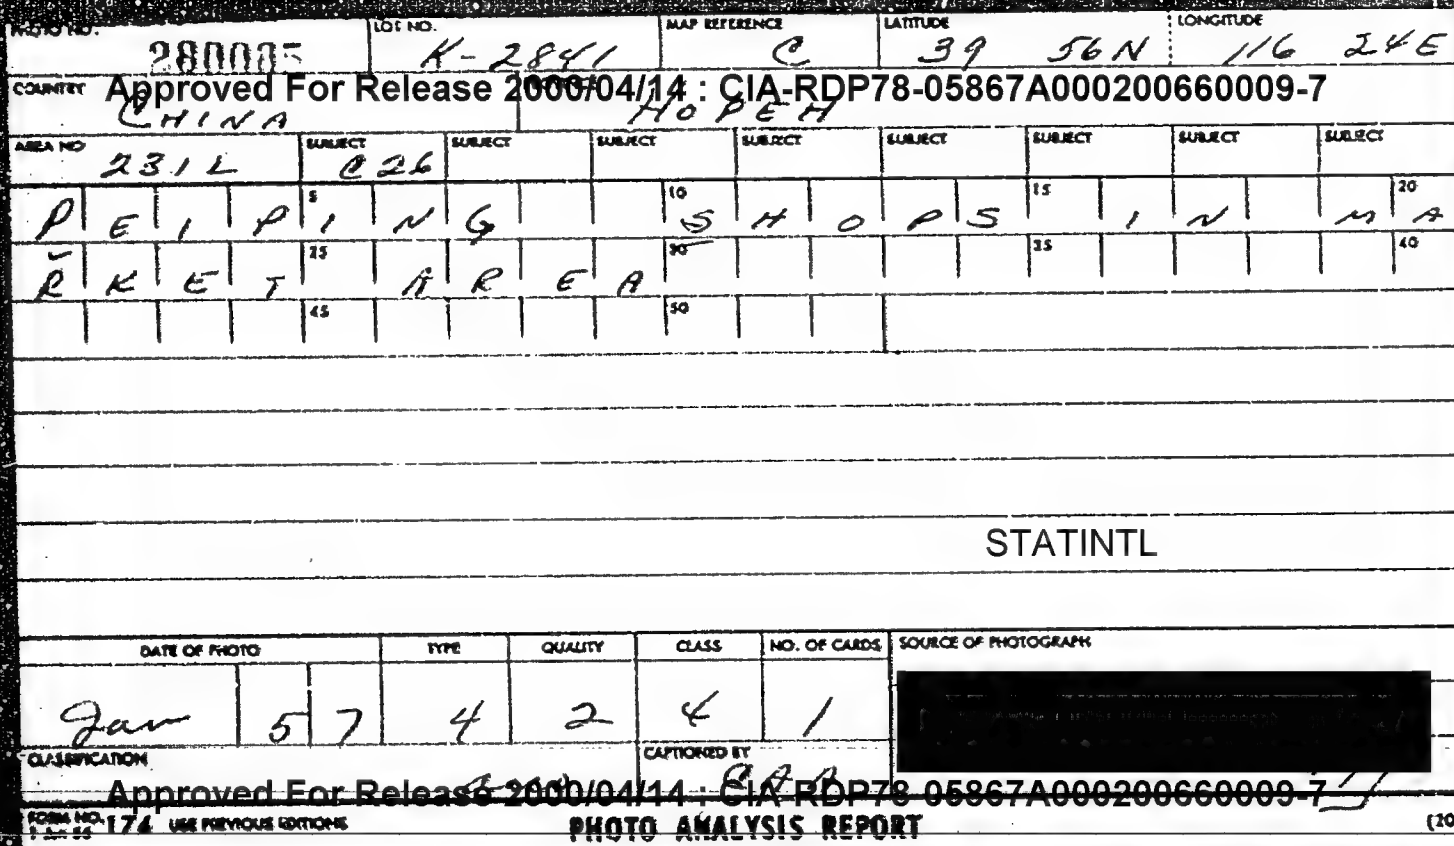 PHOTO NO. LOT NO. MAP REFERENCE LATITUDE LONGITUDE
280085 K-2841 C 39 56N 116 24E
COUNTRY Approved For Release 2000/04/14 : CIA-RDP78-05867A000200660009-7
CHINA HOPEH
AREA NO SUBJECT SUBJECT SUBJECT SUBJECT SUBJECT SUBJECT SUBJECT SUBJECT
231L C26
5 10 15 20
PEIPING SHOPS IN MA
25 30 35 40
RKET AREA
45 50
STATINTL
DATE OF PHOTO TYPE QUALITY CLASS NO. OF CARDS SOURCE OF PHOTOGRAPH
Jan 57 4 2 4 1
CLASSIFICATION CAPTIONED BY
Approved For Release 2000/04/14 : CIA-RDP78-05867A000200660009-7
FORM NO. 174 USE PREVIOUS EDITIONS PHOTO ANALYSIS REPORT (20